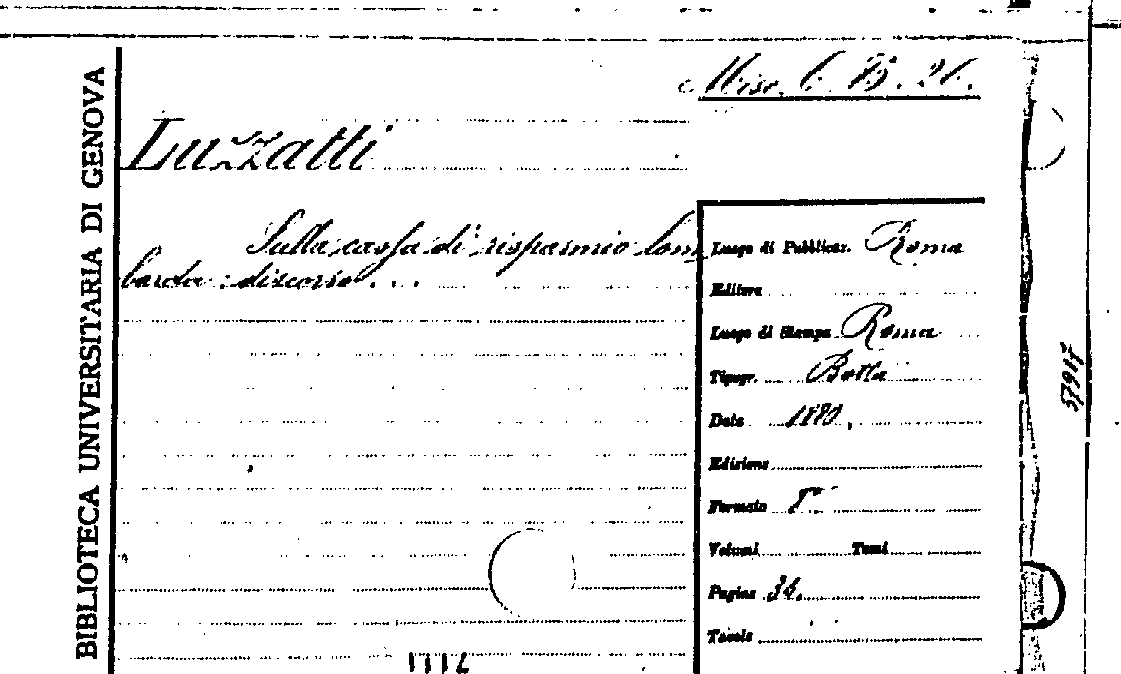 BIBLIOTECA UNIVERSITARIA DI GENOVA
Misc. C. B. 26.
Luzzatti
Sulla cassa di risparmio lom
barda : discorso . . .
Luogo di Pubblicaz. Roma
Editore
Luogo di Stampa Roma
Tipogr. Botta
Data
Edizione
Formato 8°
Volumi Tomi
Pagine 34.
Tavole